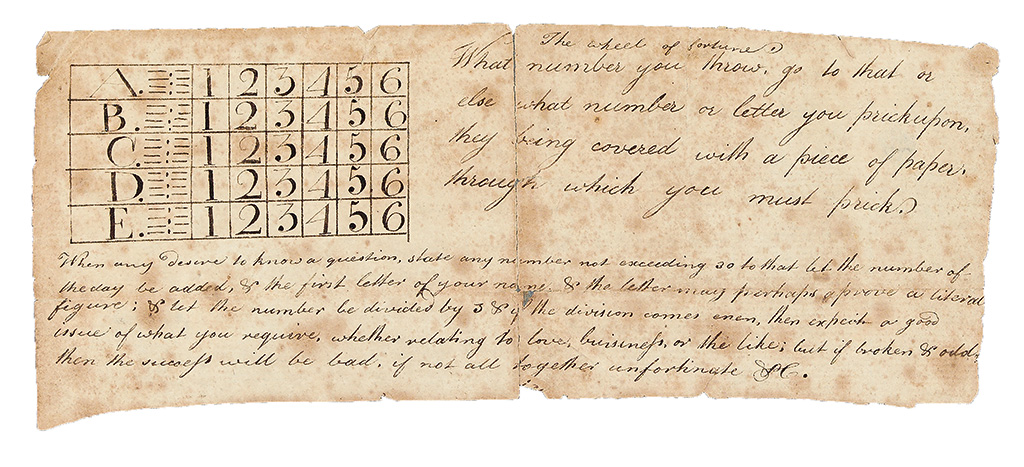 A. 1 2 3 4 5 6
B. 1 2 3 4 5 6
C. 1 2 3 4 5 6
D. 1 2 3 4 5 6
E. 1 2 3 4 5 6
The wheel of fortune.
What number you throw, go to that or
else what number or letter you prick upon,
they being covered with a piece of paper,
through which you must prick.
When any desire to know a question, state any number not exceeding 30 to that let the number of
the day be added, & the first letter of your name, & the letter may perhaps prove a literal
figure; & let the number be divided by 3 & if the division comes enen, then expect a good
issue of what you require, whether relating to love, buisiness, or the like; but if broken & odd,
then the success will be bad, if not all together unfortinate &C.